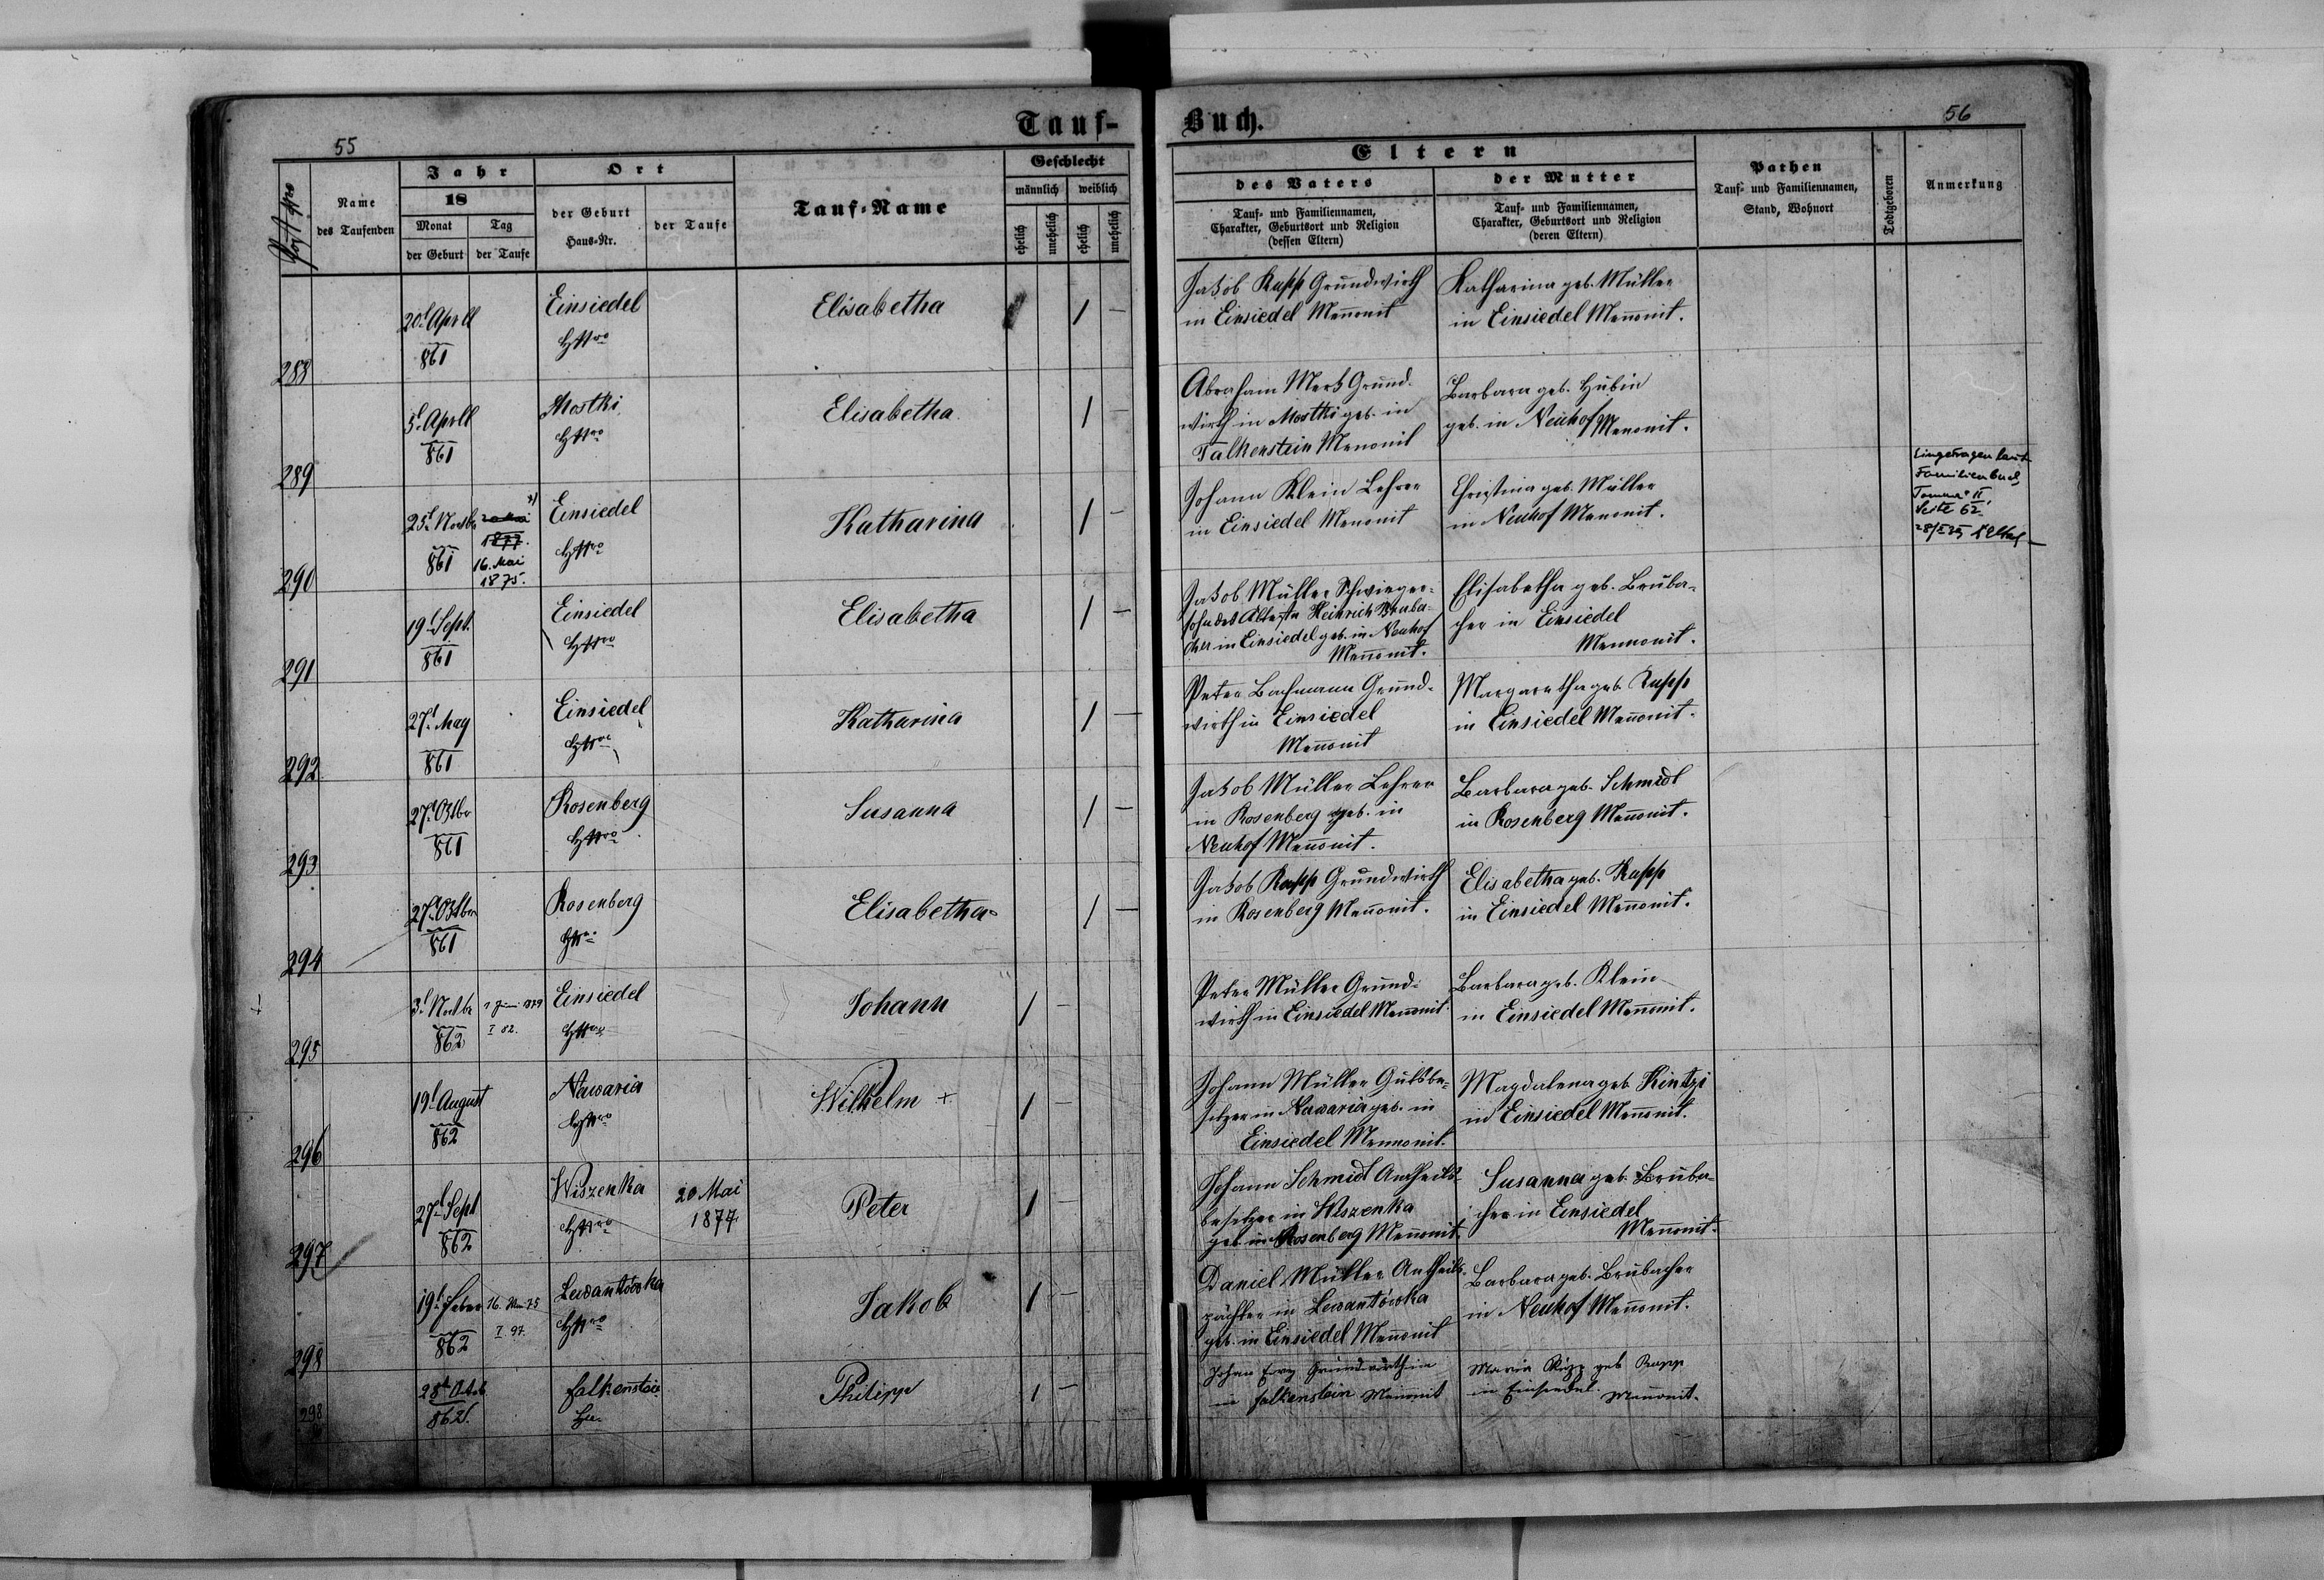 55
Tauf-
Buch.
56
Post Nro
Name des Taufenden
Jahr
18
Monat
der Geburt
Tag
der Taufe
Ort
der Geburt
Haus-Nr.
der Taufe
Tauf-Name
Geschlecht
männlich
weiblich
ehelich
unehelich
ehelich
unehelich
Eltern
des Vaters
Tauf- und Familiennamen,
Charakter, Geburtsort und Religion
(dessen Eltern)
der Mutter
Tauf- und Familiennamen,
Charakter, Geburtsort und Religion
(deren Eltern)
Pathen
Tauf- und Familiennamen,
Stand, Wohnort
Todtgeboren
Anmerkung
288
20t April
861
Einsiedel
HNro
Elisabetha
1 —
Jakob Rupp Grundwirth
in Einsiedel Menonit
Katharina geb. Müller
in Einsiedel Menonit.
289
5t April
861
Mostki
HNro
Elisabetha
1 —
Abraham Merk Grund-
wirth in Mostki geb. in
Falkenstein Menonit
Barbara geb. Hubin
geb. in Neuhof Menonit.
290
25t Novbr
861
20 Mai
1877.
16. Mai
1875.
Einsiedel
HNro
Katharina
1 —
Johann Klein Lehrer
in Einsiedel Menonit
Christina geb. Müller
in Neuhof Menonit.
Eingetragen laut
Familienbuch
Tomus II,
Seite 62.
291
19t Sept.
861
Einsiedel
HNro
Elisabetha
1 —
Jakob Müller Schwieger-
sohn des Ältesten Heinrich Bruba-
cher in Einsiedel geb. in Neuhof
Menonit.
Elisabetha geb. Bruba-
cher in Einsiedel
Mennonit.
292
27t May
861
Einsiedel
HNro
Katharina
1 —
Peter Bachmann Grund-
wirth in Einsiedel
Menonit
Margaretha geb. Rupp
in Einsiedel Menonit.
293
27t Oktbr
861
Rosenberg
HNro
Susanna
1 —
Jakob Müller Lehrer
in Rosenberg geb. in
Neuhof Menonit.
Barbara geb. Schmidt
in Rosenberg Menonit.
294
27t Oktbr
861
Rosenberg
HNro
Elisabetha
1 —
Jakob Rupp Grundwirth
in Rosenberg Menonit.
Elisabetha geb. Rupp
in Einsiedel Menonit.
295
3t Novbr
862
Juni 1879
I 82.
Einsiedel
HNro
Johann
1 —
Peter Müller Grund-
wirth in Einsiedel Menonit
Barbara geb. Klein
in Einsiedel Menonit.
296
19t August
862
Nawaria
HNro
Wilhelm +
1 —
Johann Müller Gutsbe-
sitzer in Nawaria geb. in
Einsiedel Mennonit.
Magdalena geb. Kintzi
in Einsiedel Menonit.
297
27t Sept
862
Wiszenka
HNro
20 Mai
1877
Peter
1 —
Johann Schmidt Antheils-
besitzer in Wiszenka
geb. in Rosenberg Menonit.
Susanna geb. Bruba-
cher in Einsiedel
Menonit.
298
19t Feber
862
16. Mai 75
I. 97.
Lewantówka
HNro
Jakob
1 —
Daniel Müller Antheils-
pächter in Lewantówka
geb. in Einsiedel Menonit
Barbara geb. Brubacher
in Neuhof Menonit.
298
28t Octob
862.
Falkenstein
Philipp
1 —
Johann Grundwirth in
in Falkenstein Menonit
Maria geb Rupp
in Einsiedel. Menonit.